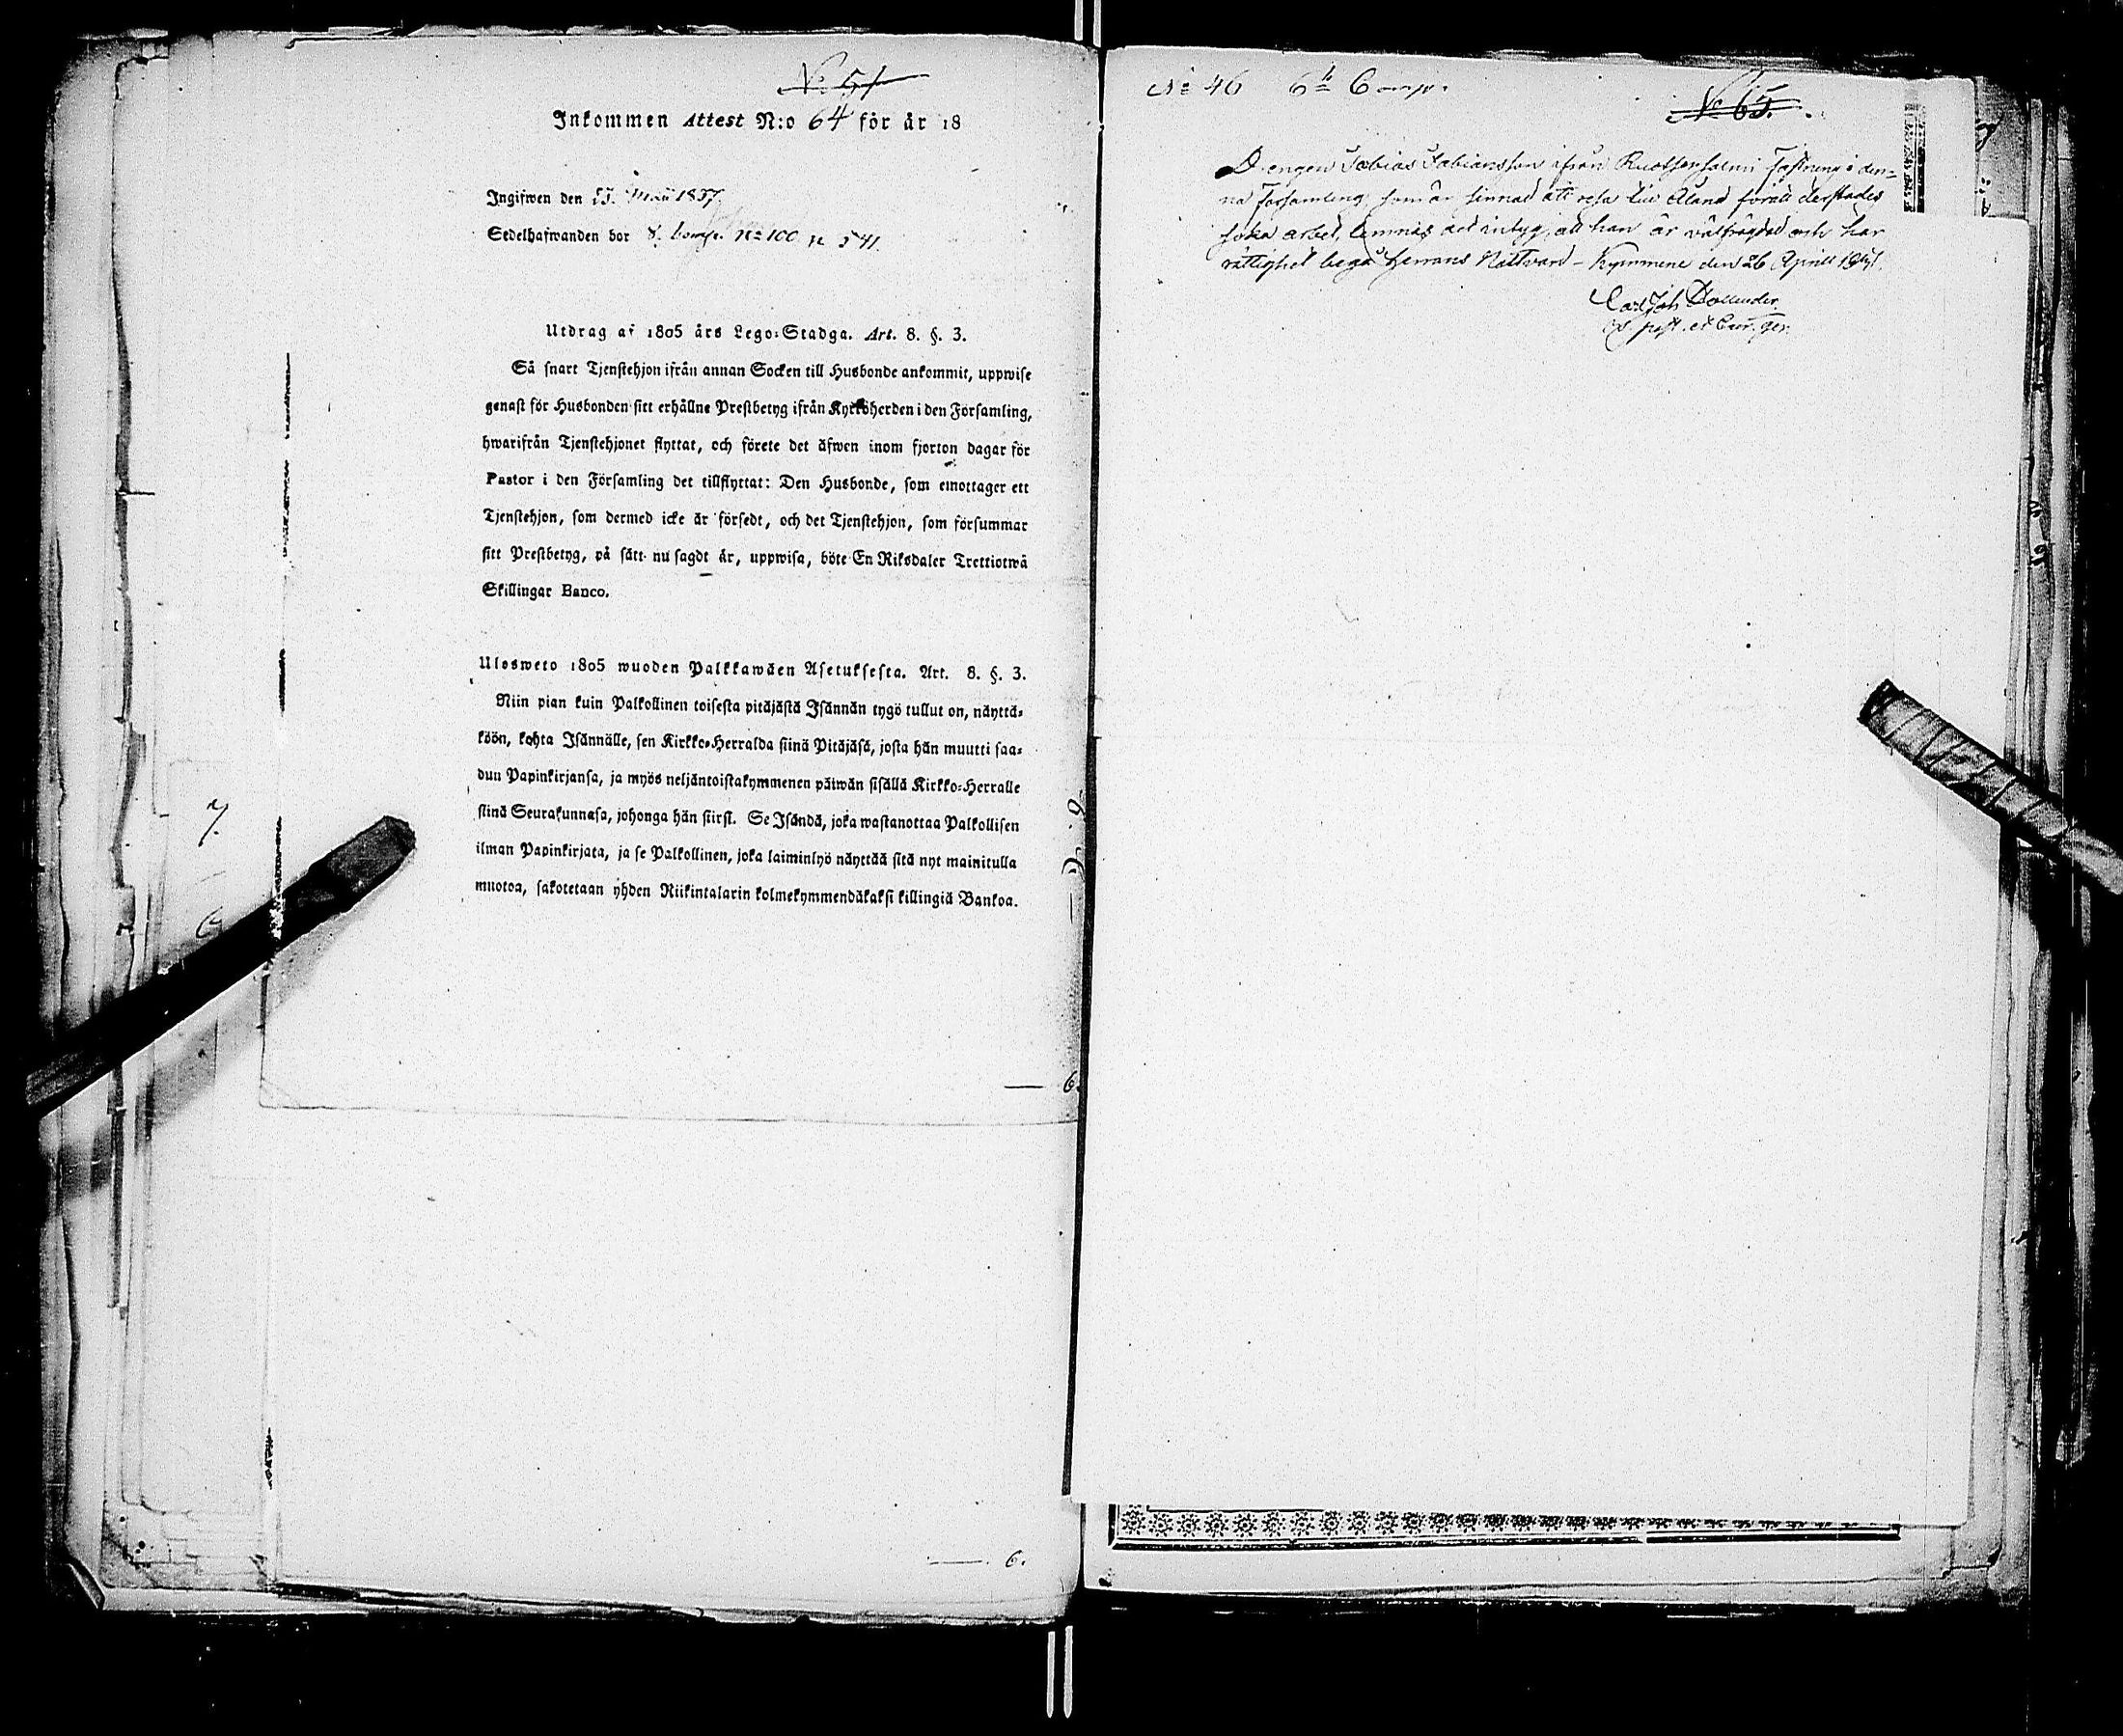 No 51
Inkommen Attest N:o 64 för år 18
Ingifwen den 23. Maii 1837.
Sedelhafwanden bor 8. Comp. No 100 n 541.
Utdrag af 1805 års Lego-Stadga. Art. 8. §. 3.
Så snart Tjenstehjon ifrån annan Socken till Husbonde ankommit, uppwise
genast för Husbonden sitt erhållne Prestbetyg ifrån Kyrkoherden i den Församling,
hwarifrån Tjenstehjonet flyttat, och förete det äfwen inom fjorton dagar för
Pastor i den Församling det tillflyttat: Den Husbonde, som emottager ett
Tjenstehjon, som dermed icke är försedt, och det Tjenstehjon, som försummar
sitt Prestbetyg, på sätt nu sagdt är, uppwisa, böte En Riksdaler Trettiotwå
Skillingar Banco.
Ulosweto 1805 wuoden Palkkawäen Asetuksesta. Art. 8. §. 3.
Niin pian kuin Palkollinen toisesta pitäjästä Isännän tygö tullut on, näyttä-
köön, kohta Isännälle, sen Kirkko-Herralda siinä Pitäjäsä, josta hän muutti saa-
dun Papinkirjansa, ja myös neljäntoistakymmenen päiwän sisällä Kirkko-Herralle
siinä Seurakunnasa, johonga hän siirsi. Se Isändä, joka wastanottaa Palkollisen
ilman Papinkirjata, ja se Palkollinen, joka laiminlyö näyttää sitä nyt mainitulla
muotoa, sakotetaan yhden Riikintalarin kolmekymmendäkaksi killingiä Bankoa.
7.
6.
6.
No 46 6te Comp.
No 65.
Drengen Tobias Fabiansson ifrån Ruotsensalmi fästning i den-
na Församling, som är sinnad att resa till Åland föratt derstädes
söka arbet, lemnas det intyg, att han är välfrägdad och har
rättighet begå Herrans Nattvard - Kymmene den 26 Aprill
Carl Joh